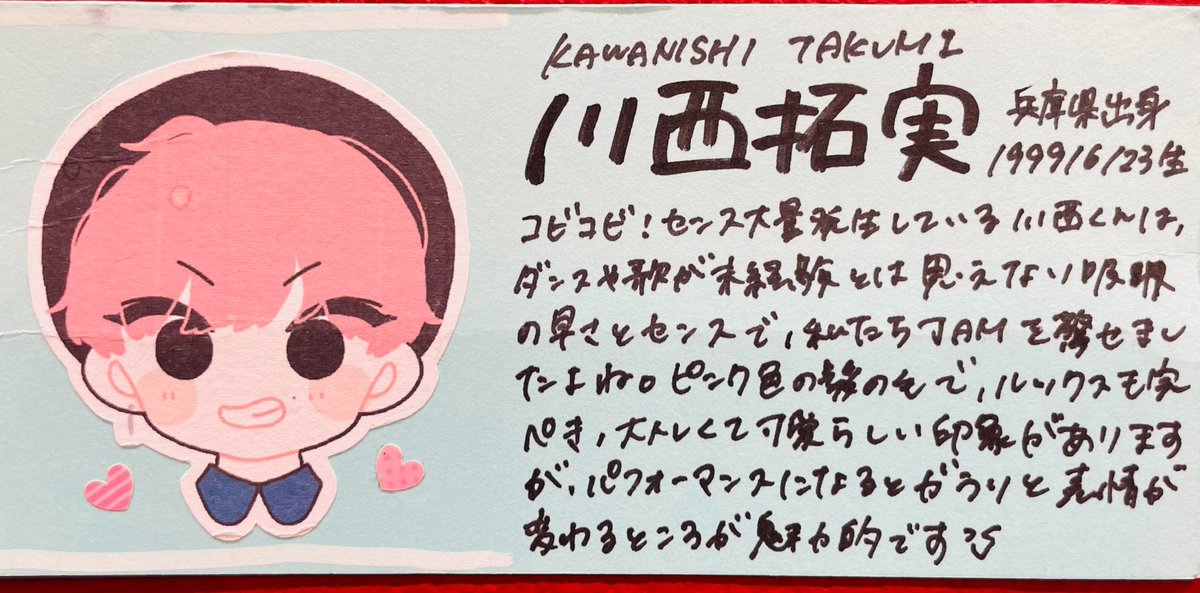 KAWANISHI TAKUMI
川西拓実
兵庫県出身
1999/6/23生
コビコビ!センス大量派生している川西くんは,
ダンスや歌が未経験とは思えない吸収
の早さとセンスで,私たちJAMを驚せまし
たよね。ピンク色の髪ので,ルックスも完
ぺき,大人しくて可愛らしい印象があります
が,パフォーマンスになるとがらりと表情が
変わるところが魅力的です